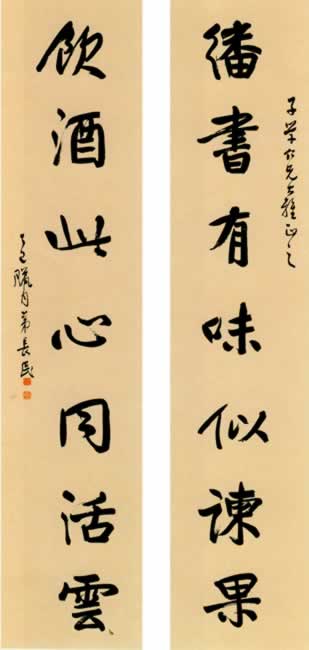 子仁兄大雅正之
繙書有味似諫果
飲酒此心同活雲
丁巳臘月弟長民